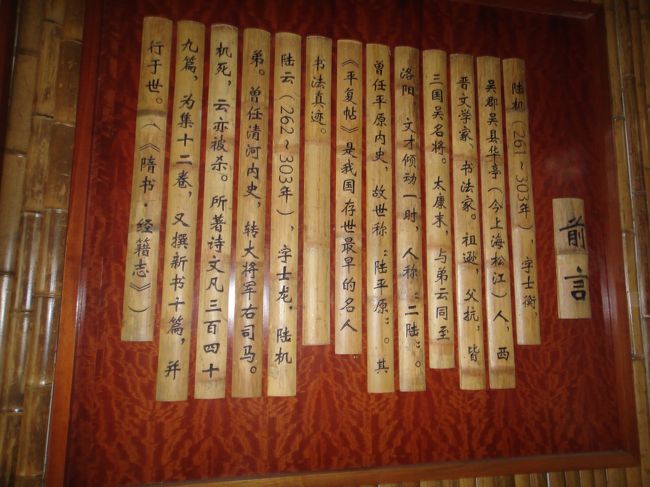 前言
陆机（261～303年），字士衡，
吴郡吴县华亭（今上海松江）人，西
晋文学家、书法家。祖逊，父抗，皆
三国吴名将。太康末，与弟云同至
洛阳，文才倾动一时，人称“二陆”。
曾任平原内史，故世称“陆平原”。其
《平复帖》是我国存世最早的名人
书法真迹。
陆云（262～303年），字士龙，陆机
弟。曾任清河内史，转大将军右司马。
机死，云亦被杀。所著诗文凡三百四十
九篇，为集十二卷，又撰新书十篇，并
行于世。（《隋书·经籍志》）